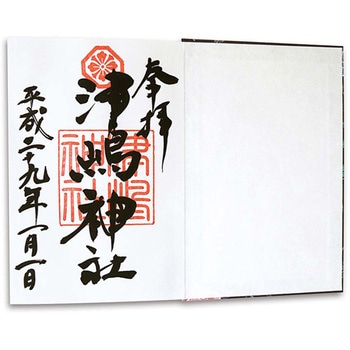 奉拝
津嶋神社
津嶋
神社
平成二十九年一月一日